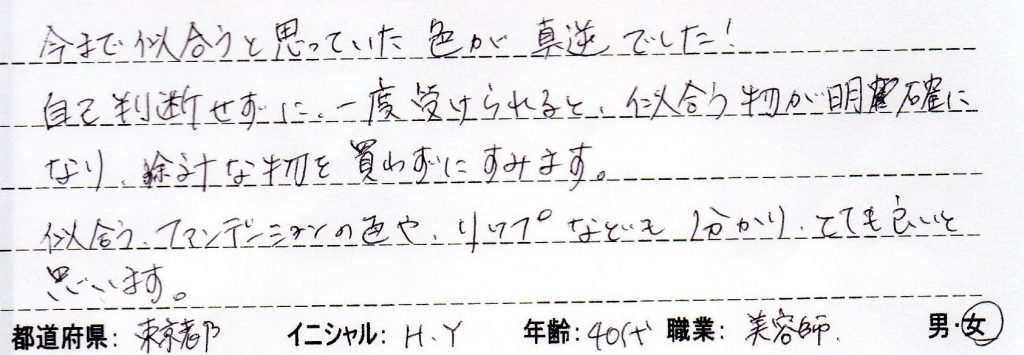 今まで似合うと思っていた色が真逆でした!
自己判断せずに、一度受けられると、似合う物が明確に
なり、余計な物を買わずにすみます。
似合う、ファンデーションの色や、リップなども分かり、とても良いと
思います。
都道府県: 東京都 イニシャル: H.Y 年齢: 40代 職業: 美容師. 男・女